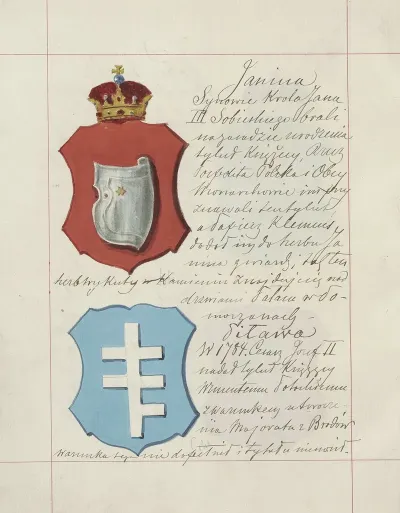 Janina
Synowie Króla Jana
III Sobieskiego brali
na zasadzie urodzenia
tytuł Książęcy, Rzecz
Pospolita Polska i Obcy
Monarchowie im przy
znawali ten tytuł
a Papież Klemens
dodał im do herbu Ja
nina gwiazdę, taż ten
herb wykuty w Kamieniu znajduje się nad
drzwiami Pałacu w
Piława
W 1784. Cesarz Józef II
nadał tytuł Książęcy
Wincentemu Potockiemu
z warunkiem utworze
nia Majoratu z Brodów
warunku tego nie dopełnił i tytułu nie